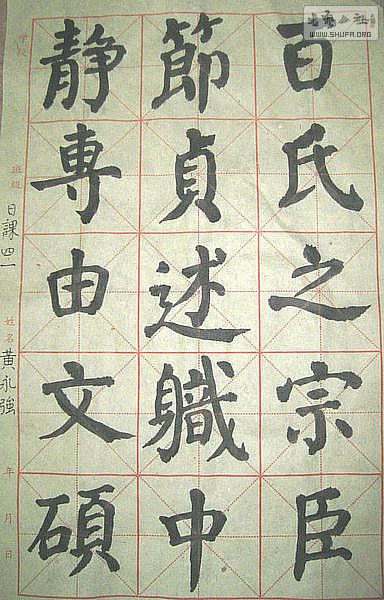 百氏之宗臣
節貞述職中
静專由文碩
学校
班級
日課四二
姓名
黄永強
年 月 日
书艺公社
WWW.SHUFA.ORG